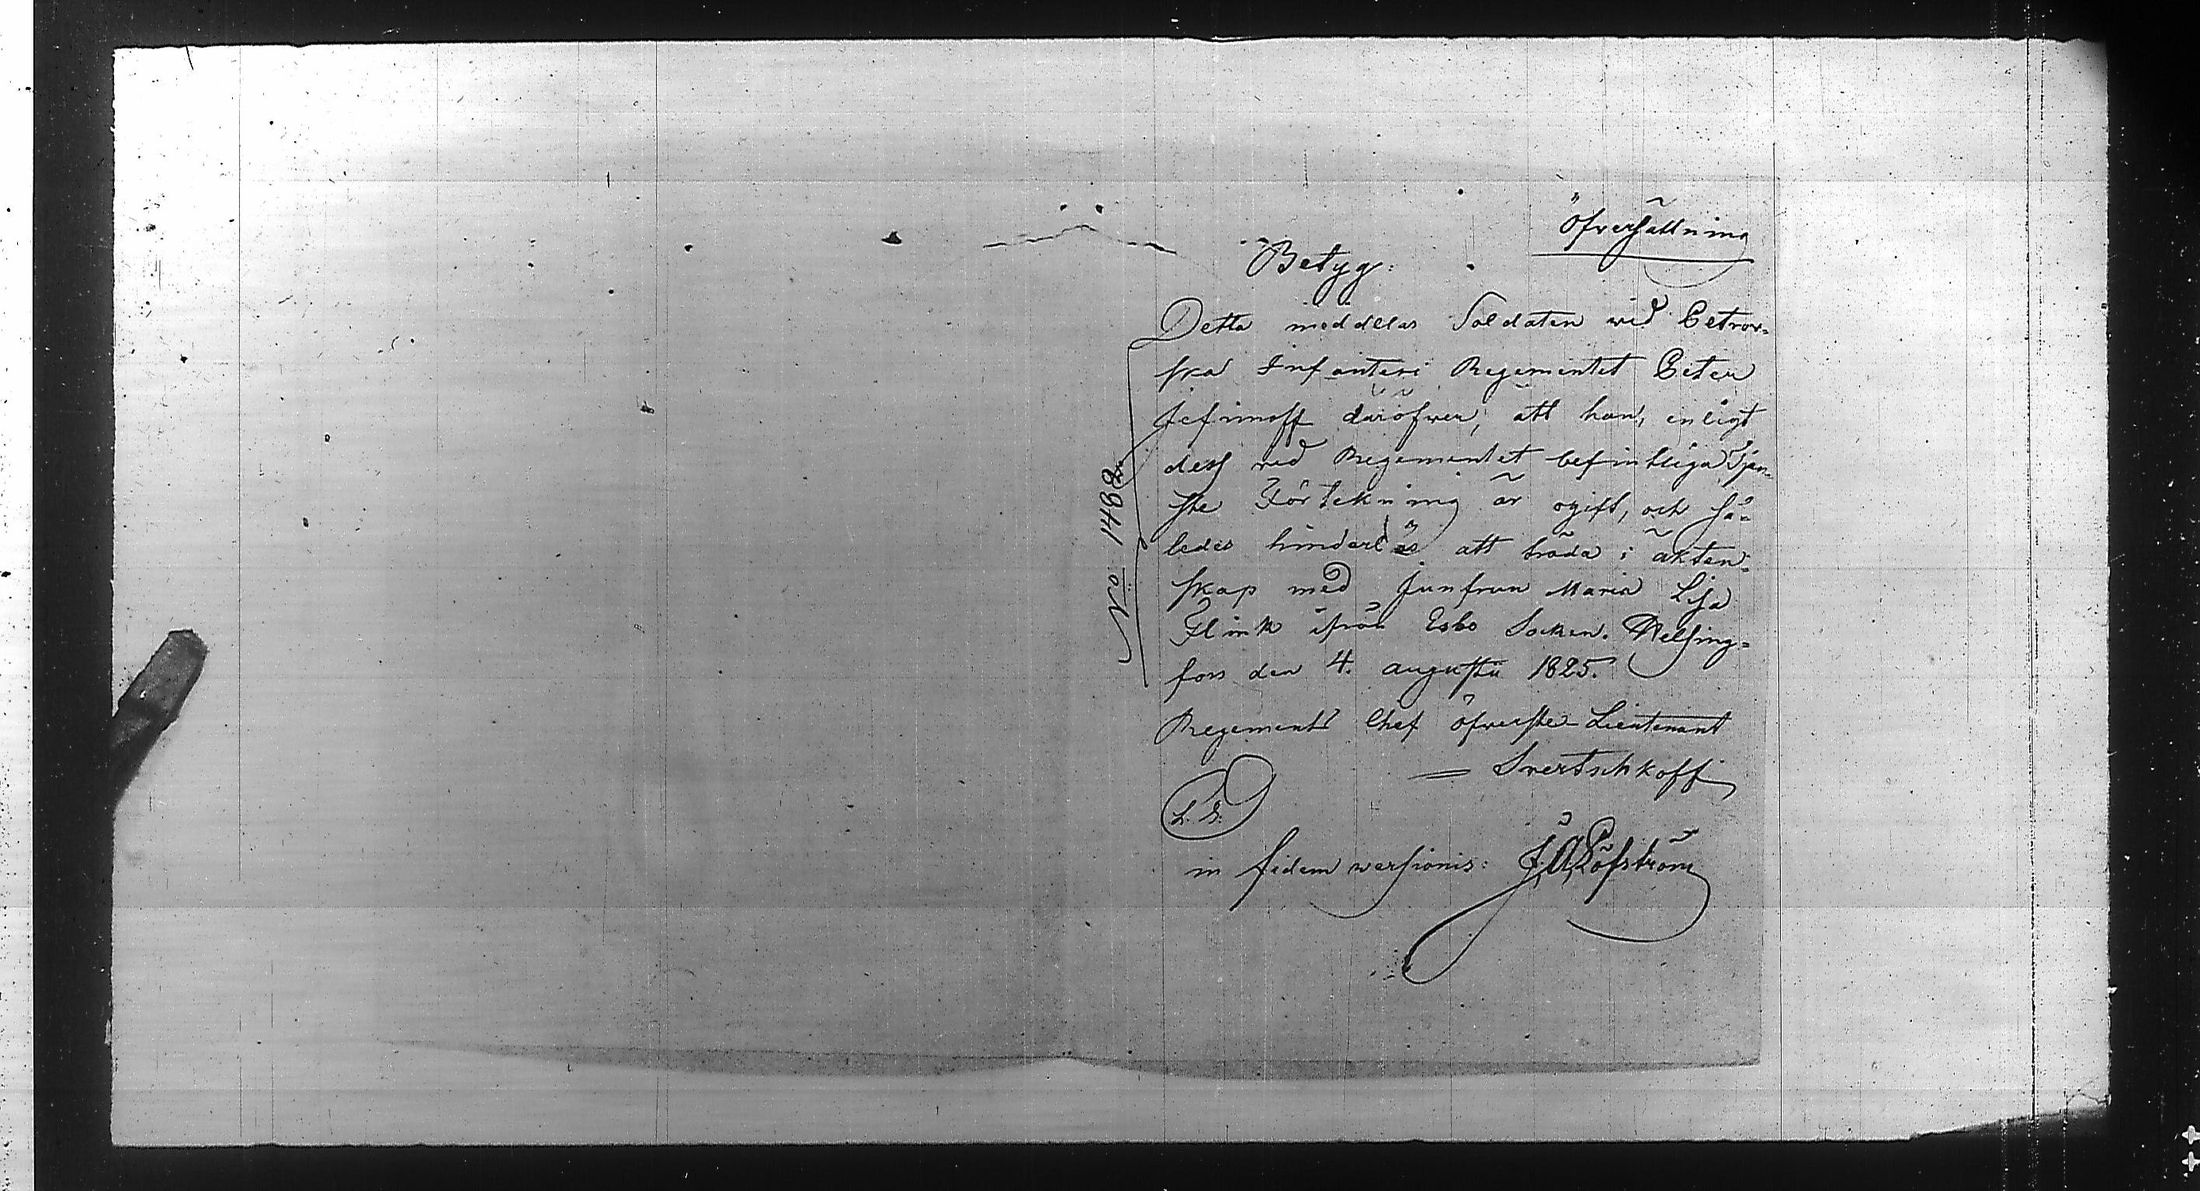 Öfversättning
Betyg:
Detta meddelas Soldaten vid Petrov-
ska Infanteri Regementet Peter
Jefimoff däröfver, att han, enligt
dess vid Regementet befintliga Tjen-
ste Förtekning är ogift, och så-
ledes hinderlös att träda i äkten-
skap med Jungfrun Maria Lisa
Flink ifrån Esbo Socken. Helsing-
fors den 4. augusti 1825.
Regements Chef Öfverste Lieutenant
= Svertschkoff
L. S.
in fidem versionis: J. A. Löfström
No 1468